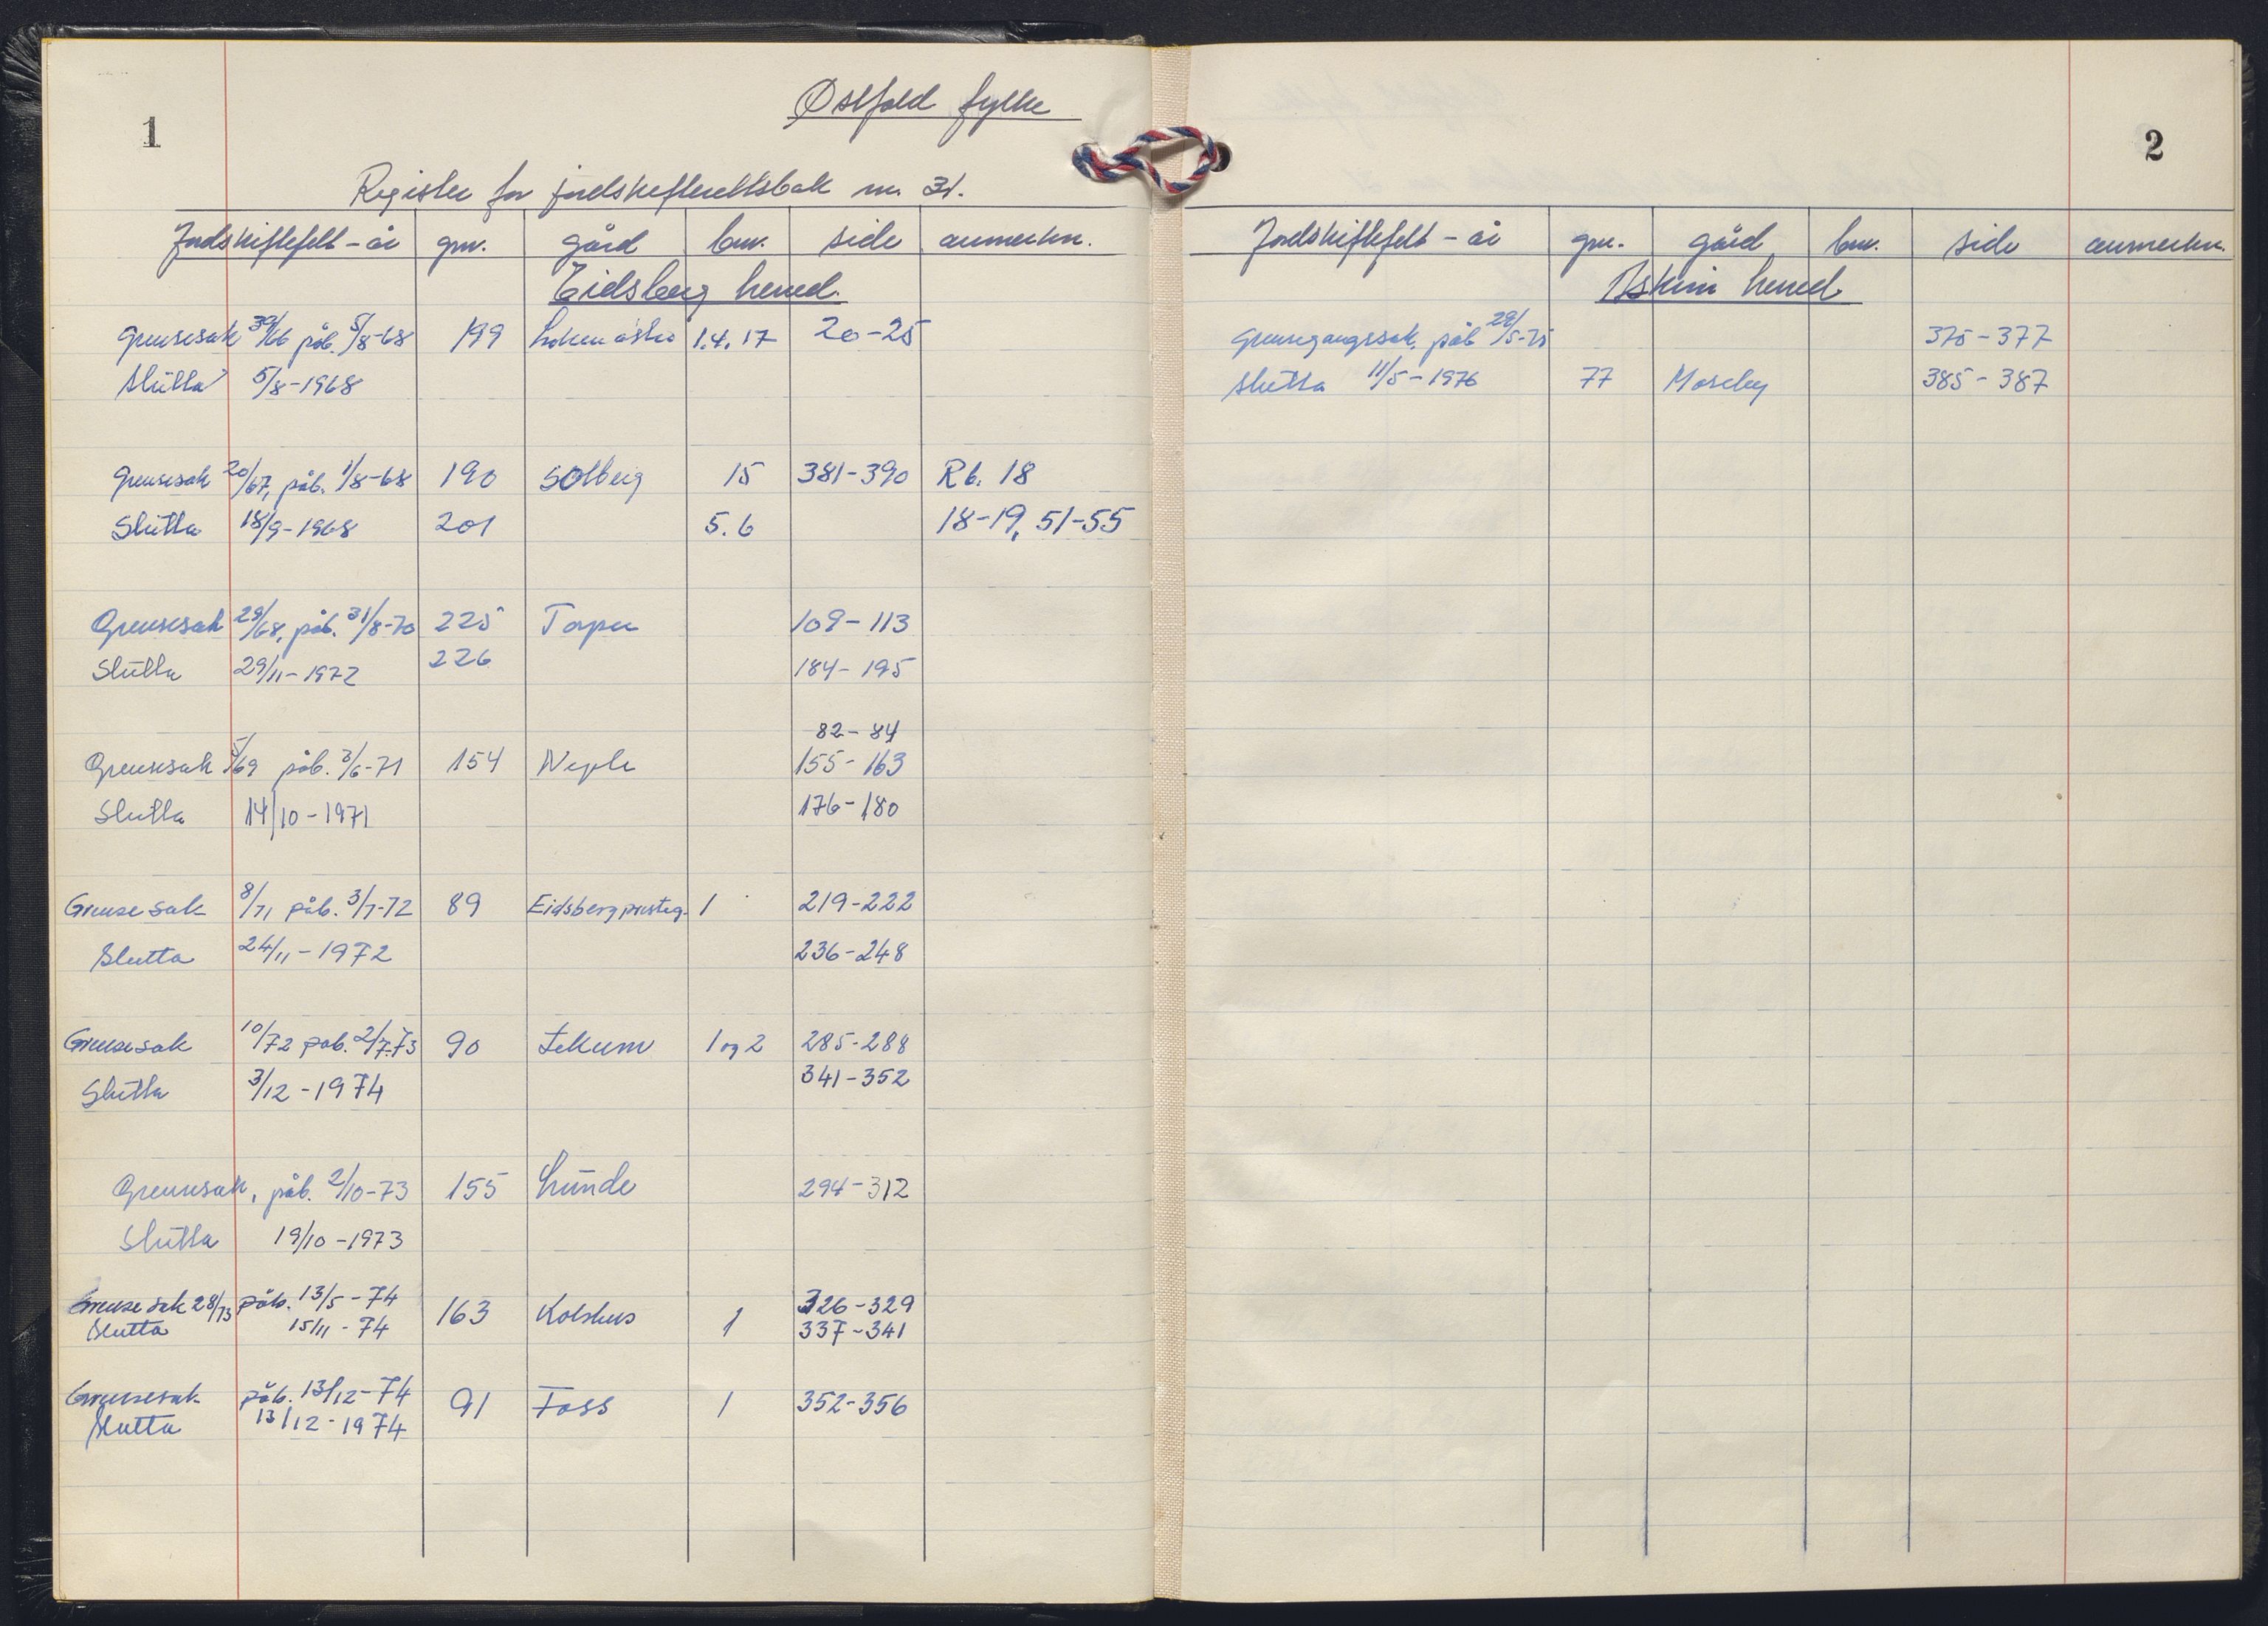 1
Østfold fylke
Register for jordskifterettsbok nr. 31.
Jordskiftefelt - år gnr. gård bnr. side anmerkn.
Eidsberg herred.
Grensesak 39/66 påb. 5/8-68 199 Løken østre 1.4.17 20-25
Slutta 5/8-1968
Grensesak 20/67, påb. 1/8-68 190 Solberg 15 381-390 Rb. 18
Slutta 18/9-1968 201 5.6 18-19, 51-55
Grensesak 29/68, påb. 31/8-70 225 Torper 109-113
Slutta 29/11-1972 226 184-195
82-84
Grensesak 5/69 påb. 3/6-71 154 Neple 155-163
Slutta 14/10-1971 176-180
Grensesak 8/71 påb. 3/7-72 89 Eidsberg presteg. 1 219-222
Slutta 24/11-1972 236-248
Grensesak 10/72 påb. 2/7-73 90 Lekum 1 og 2 285-288
Slutta 3/12-1974 341-352
Grensesak, påb. 2/10-73 155 Lunde 294-312
Slutta 19/10-1973
Grensesak 28/73 påb. 13/5-74 163 Kolshus 1 326-329
Slutta 15/11-74 337-341
Grensesak påb. 13/12-74 91 Foss 1 352-356
Slutta 13/12-1974
2
Jordskiftefelt - år gnr. gård bnr. side anmerkn.
Askim herred
Grensegangssak, påb. 29/5-75 375-377
Slutta 11/5-1976 77 Moseby 385-387